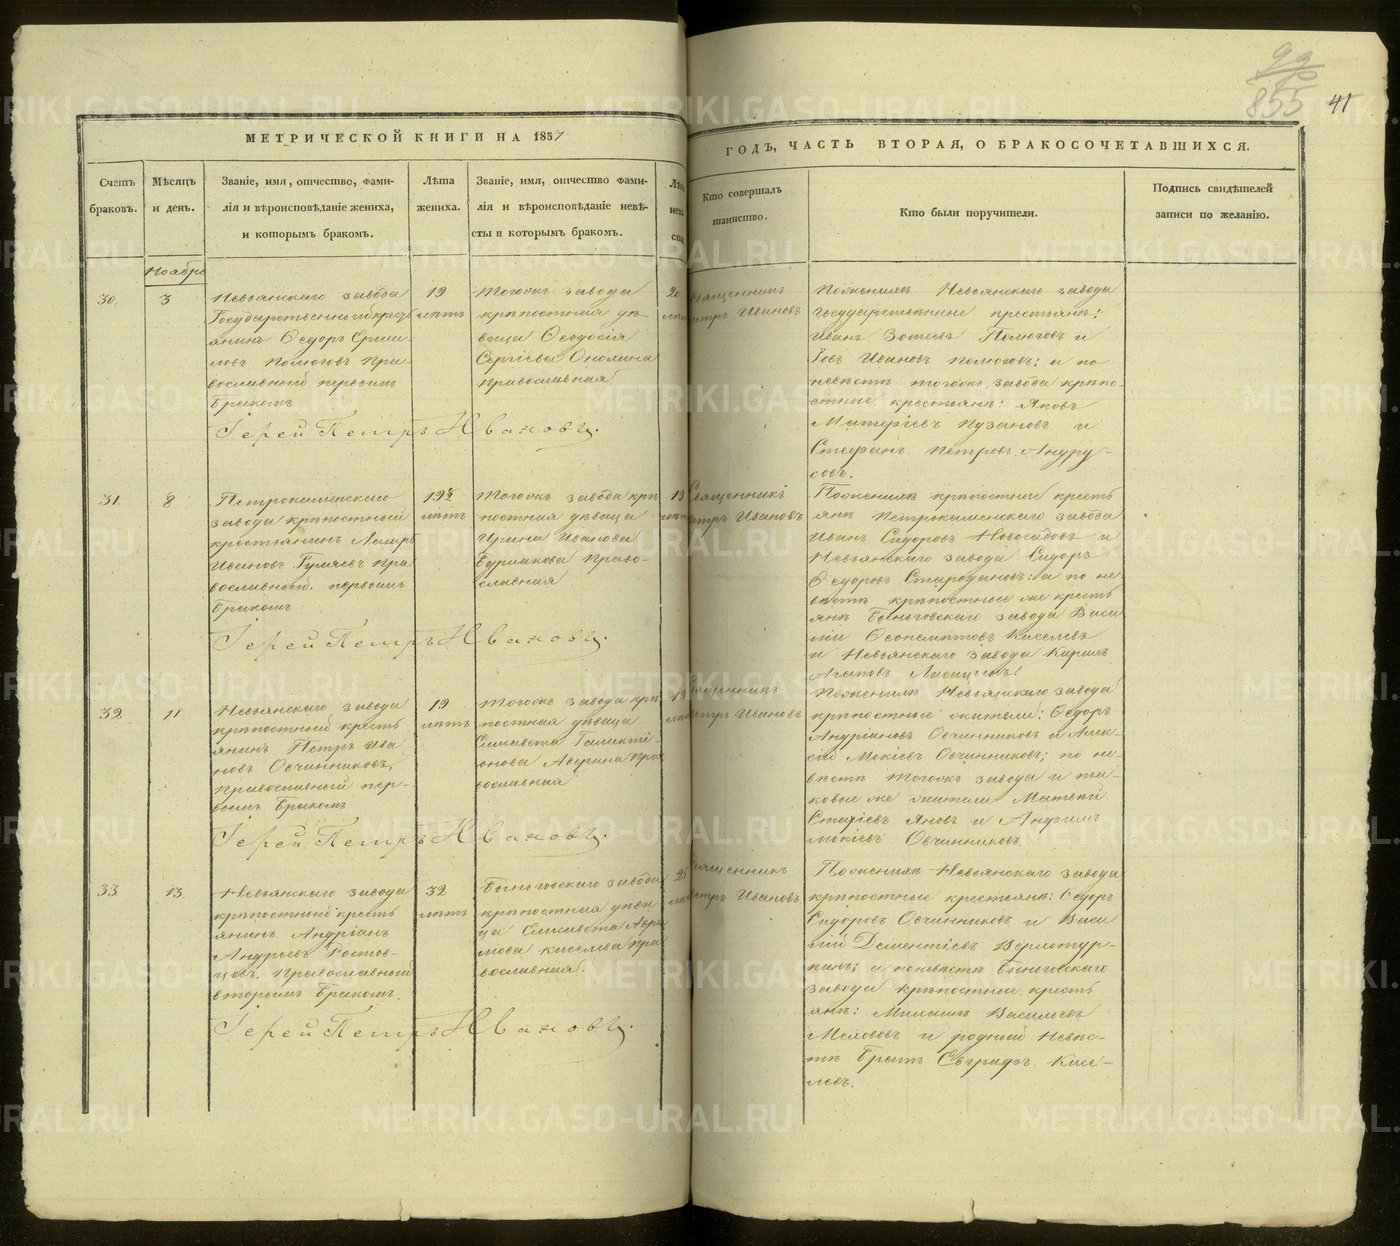 92
855
41
МЕТРИЧЕСКОЙ КНИГИ НА 1857
ГОДЪ, ЧАСТЬ ВТОРАЯ, О БРАКОСОЧЕТАВШИХСЯ.
Счетъ
браковъ.
Мѣсяцъ
и день.
Званіе, имя, отчество, фами-
лія и вѣроисповѣданіе жениха,
и которымъ бракомъ.
Лѣта
жениха.
Званіе, имя, отчество фами-
лія и вѣроисповѣданіе невѣ-
сты и которымъ бракомъ.
Лѣта
невѣ
сты
Кто совершалъ
таинство.
Кто были поручители.
Подпись свидѣтелей
записи по желанію.
Ноябрь
30.
3
Невьянскаго завода
Государственной кресть
янинъ Ѳедоръ
Полюговъ Пра-
вославный первымъ
бракомъ
19
лѣтъ
Тогожъ завода
крѣпостная дѣ-
вица Ѳеодосія
Сергіева
православная
20
лѣтъ
Священникъ
Петръ Ивановъ
По женихѣ Невьянскаго завода
государственные крестьянъ:
Иванъ Зотеевъ Полюговъ и
Іовъ Ивановъ Полюговъ; а по
невѣстѣ тогожъ завода крѣпо-
стные крестьянъ: Яковъ
Пузановъ и
Стефанъ Петровъ Андру-
совъ.
Іерей Петръ Ивановъ.
31.
8
Петрокаменскаго
завода крѣпостный
крестьянинъ Лазарь
Ивановъ Гуляевъ пра
вославный первымъ
бракомъ
19½
лѣтъ
Тогожъ завода крѣ
постная дѣвица
Ирина Иванова
Бурмакова Право-
славная
19
лѣтъ
Священникъ
Петръ Ивановъ
По женихѣ крѣпостные кресть
янъ Петрокаменскаго завода
Иванъ Сидоровъ Новосадовъ и
Невьянскаго завода Сидоръ
Ѳедоровъ Стародановъ: а по не-
вѣстѣ крѣпостные же кресть
янъ Быньговскаго завода Васи
лій Киселевъ
и Невьянскаго завода Кирилъ
Агаповъ Лисицынъ!
Іерей Петръ Ивановъ.
32
11
Невьянскаго завода
крѣпостный кресть
янинъ Петръ Ива
новъ Овчинниковъ,
Православный пер-
вымъ бракомъ
19
лѣтъ
Тогожъ завода крѣ
постная дѣвица
Елисавета Галакті-
онова Аверина Пра
вославная
19
лѣтъ
Священникъ
Петръ Ивановъ
По женихѣ Невьянскаго завода
крѣпостные жители: Ѳедоръ
Андріановъ Овчинниковъ и Алек-
сѣй Мокіевъ Овчинниковъ; по не-
вѣстѣ тогожъ завода и та-
ковые же жители Матвѣй
Яновъ и Анфимъ
Мокіевъ Овчинниковъ
Іерей Петръ Ивановъ.
33
13
Невьянскаго завода
крѣпостный кресть
янинъ Андріанъ
Андреевъ Ростов-
цовъ, Православный
вторымъ бракомъ.
32
лѣтъ
Быньговскаго завода
крѣпостная дѣви
ца Елисавета Авра
мова Киселева Пра
вославная.
Священникъ
Петръ Ивановъ
По женихѣ Невьянскаго завода
крѣпостные крестьянъ: Ѳедоръ
Сидоровъ Овчинниковъ и Васи
лій Дементіевъ Верхотур-
кинъ; а по невѣстѣ Быньговскаго
завода крѣпостные кресть
янъ: Василіевъ
и родный невѣс-
тѣ братъ Евграфъ Кисе-
левъ.
Іерей Петръ Ивановъ.
METRIKI.GASO-URAL.RU